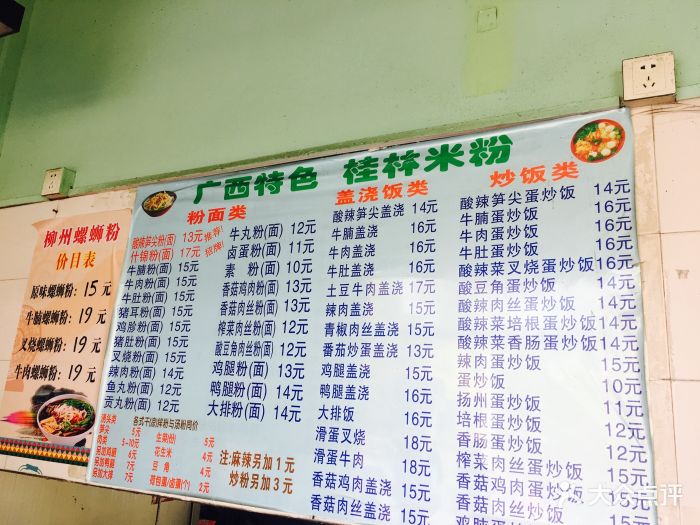 柳州螺蛳粉
价目表
原味螺蛳粉：15元
牛腩螺蛳粉：19元
叉烧螺蛳粉：19元
牛肉螺蛳粉：19元
广西特色 桂林米粉
粉面类
酸辣笋尖粉(面) 13元 推荐!
什锦粉(面) 17元 招牌!
牛腩粉(面) 15元
牛肉粉(面) 15元
牛肚粉(面) 15元
猪耳粉(面) 15元
鸡胗粉(面) 15元
猪肚粉(面) 15元
叉烧粉(面) 15元
辣肉粉(面) 14元
鱼丸粉(面) 12元
贡丸粉(面) 12元
牛丸粉(面) 12元
卤蛋粉(面) 11元
素 粉(面) 10元
香菇鸡肉粉(面) 13元
香菇肉丝粉(面) 13元
榨菜肉丝粉(面) 12元
酸豆角肉丝粉(面) 12元
鸡腿粉(面) 13元
鸭腿粉(面) 14元
大排粉(面) 14元
汤头类
笋尖 5元
肉类 5-10元
另加鸡腿 6元
另加鸭腿 7元
另加大排 7元
各式干(卤)拌粉与汤粉同价
生菜(份) 5元
花生米 4元
豆 角 4元
荷包蛋/卤蛋(个) 2元
注:麻辣另加1元
炒粉另加3元
盖浇饭类
酸辣笋尖盖浇 14元
牛腩盖浇 16元
牛肉盖浇 16元
牛肚盖浇 16元
土豆牛肉盖浇 17元
辣肉盖浇 15元
青椒肉丝盖浇 15元
番茄炒蛋盖浇 13元
鸡腿盖浇 15元
鸭腿盖浇 16元
大排饭 15元
滑蛋叉烧 18元
滑蛋牛肉 18元
香菇鸡肉盖浇 15元
香菇肉丝盖浇 15元
炒饭类
酸辣笋尖蛋炒饭 14元
牛腩蛋炒饭 16元
牛肉蛋炒饭 16元
牛肚蛋炒饭 16元
酸辣菜叉烧蛋炒饭 16元
酸豆角蛋炒饭 14元
酸辣肉丝蛋炒饭 14元
酸辣菜培根蛋炒饭 14元
酸辣菜香肠蛋炒饭 14元
辣肉蛋炒饭 15元
蛋炒饭 10元
扬州蛋炒饭 11元
培根蛋炒饭 12元
香肠蛋炒饭 12元
榨菜肉丝蛋炒饭
香菇鸡肉蛋炒饭
香菇肉丝蛋炒饭
大众点评